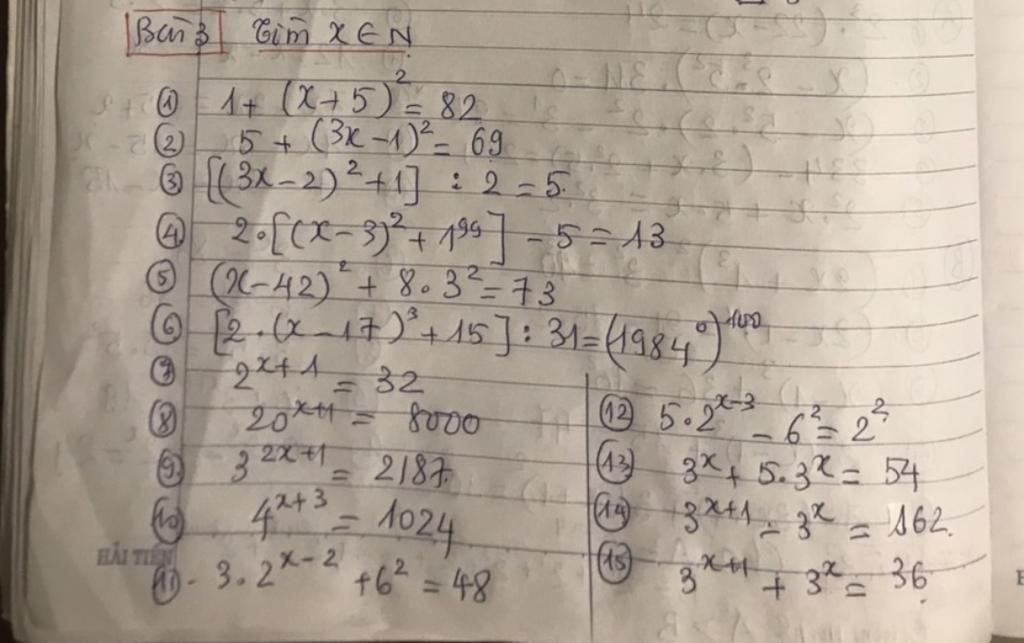 Bài 3 Tìm x ∈ N
① 1 + (x + 5)² = 82
② 5 + (3x - 1)² = 69
③ [(3x - 2)² + 1] : 2 = 5
④ 2.[(x - 3)² + 1⁹⁹] - 5 = 13
⑤ (x - 42)² + 8.3² = 73
⑥ [2.(x - 17)³ + 15] : 31 = (1984⁰)¹⁰⁰
⑦ 2ˣ⁺¹ = 32
⑧ 20ˣ⁺¹ = 8000
⑨ 3²ˣ⁺¹ = 2187
⑩ 4ˣ⁺³ = 1024
HẢI TIẾN
⑪ 3.2ˣ⁻² + 6² = 48
⑫ 5.2ˣ⁻³ - 6² = 2²
⑬ 3ˣ + 5.3ˣ = 54
⑭ 3ˣ⁺¹ - 3ˣ = 162
⑮ 3ˣ⁺¹ + 3ˣ = 36